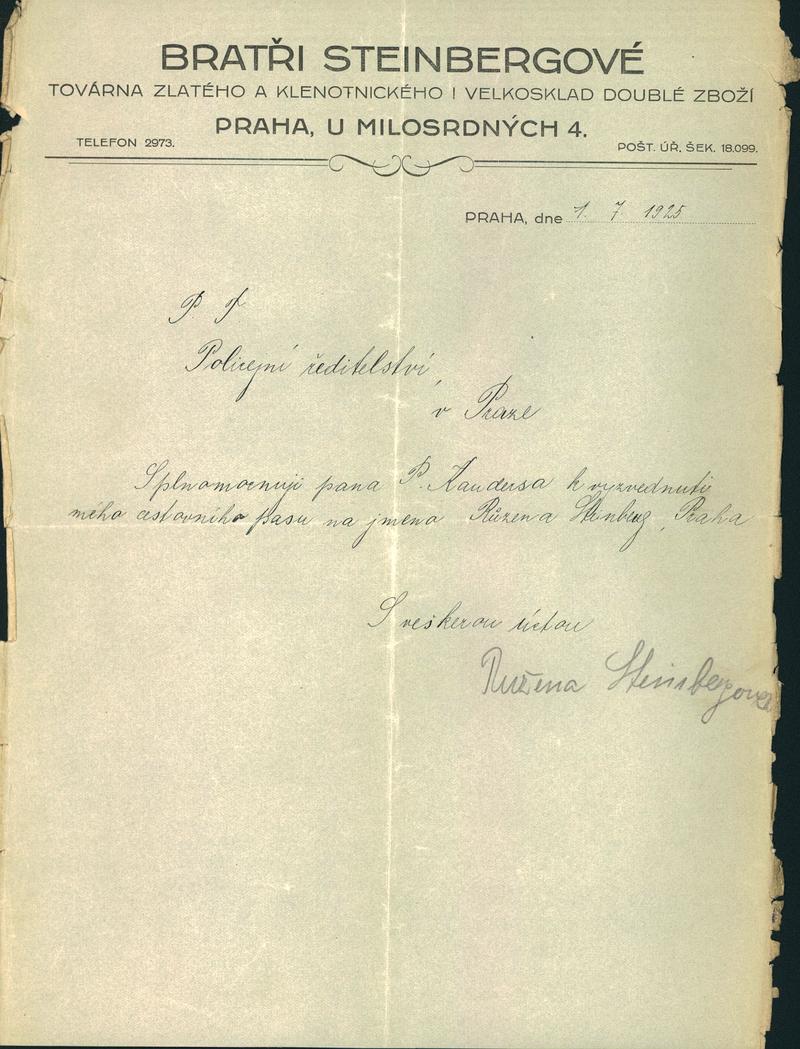 BRATŘI STEINBERGOVÉ
TOVÁRNA ZLATÉHO A KLENOTNICKÉHO I VELKOSKLAD DOUBLÉ ZBOŽÍ
PRAHA, U MILOSRDNÝCH 4.
TELEFON 2973.
POŠT. ÚŘ. ŠEK. 18.099.
PRAHA, dne 1. 7. 1925
P. T.
Policejní ředitelství
v Praze
Splnomocnuji pana P. Kaudersa k vyzvednutí
mého cestovního pasu na jmeno Růžena Steinberg, Praha
S veškerou úctou
Ružena Steinbergova